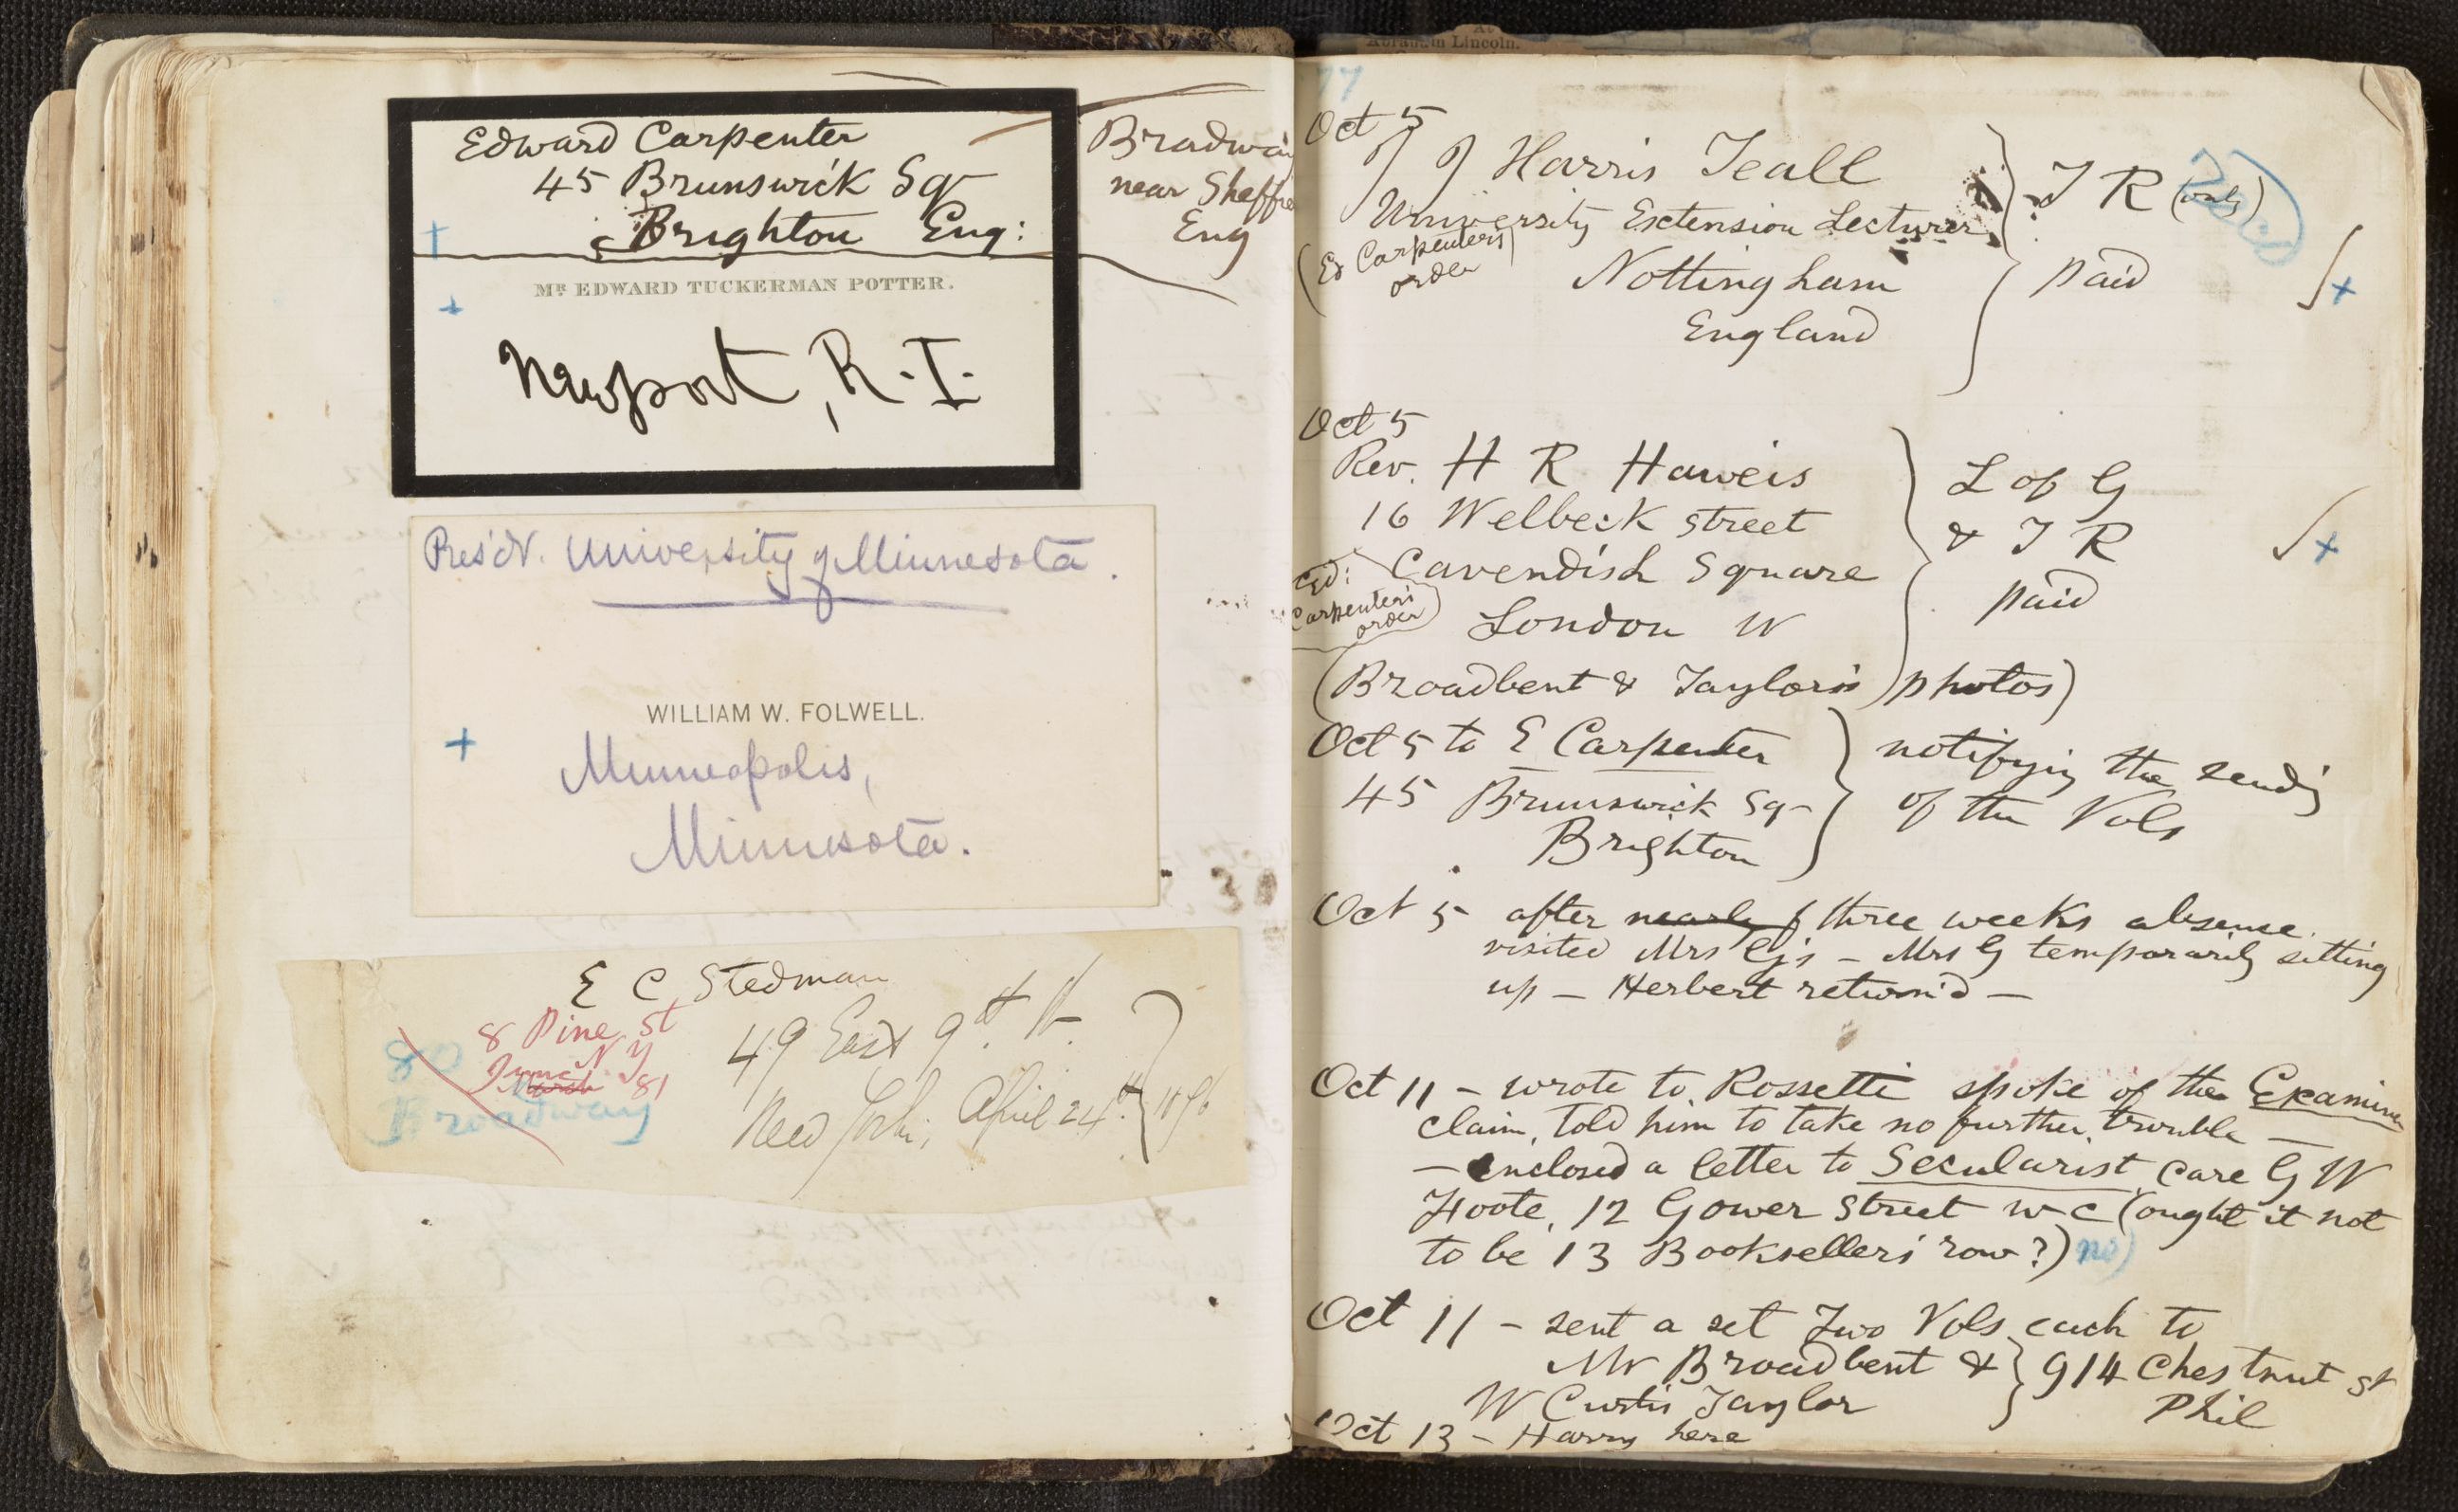 Edward Carpenter
45 Brunswick Sq
Brighton Eng:
Bradway
near Sheffie
Eng
MR EDWARD TUCKERMAN POTTER.
Newport, R. I.
Pres'dt. University of Minnesota.
WILLIAM W. FOLWELL.
Minneapolis,
Minnesota.
E C Stedman
8 Pine st
N Y
June March 81
80
Broadway
49 East 9th St
New York, April 24th 1876
Abraham Lincoln.
77
Oct 5
J J Harris Teall
University Extension Lecturer
(Ed Carpenters
order
Nottingham
England
T R (only)
paid
Oct 5
Rev. H R Haweis
16 Welbeck street
Cavendish Square
London W
Ed:
Carpenter's
order
L of G
& T R
paid
(Broadbent & Taylor's photos)
Oct 5 to E Carpenter
45 Brunswick Sq
Brighton
notifying the sendi'g
of the Vols
Oct 5 after nearly three weeks absence
visited Mrs G's – Mrs G temporarily sitting
up – Herbert return'd –
Oct 11 – wrote to Rossetti spoke of the Examiner
claim, told him to take no further trouble –
– enclosed a letter to Secularist care G W
Foote, 12 Gower Street W C (ought it not
to be 13 Booksellers' row?) no)
Oct 11 – sent a set Two Vols each to
Mr Broadbent &
W Curtis Taylor
914 Chestnut st
Phil
Oct 13 – Harry here